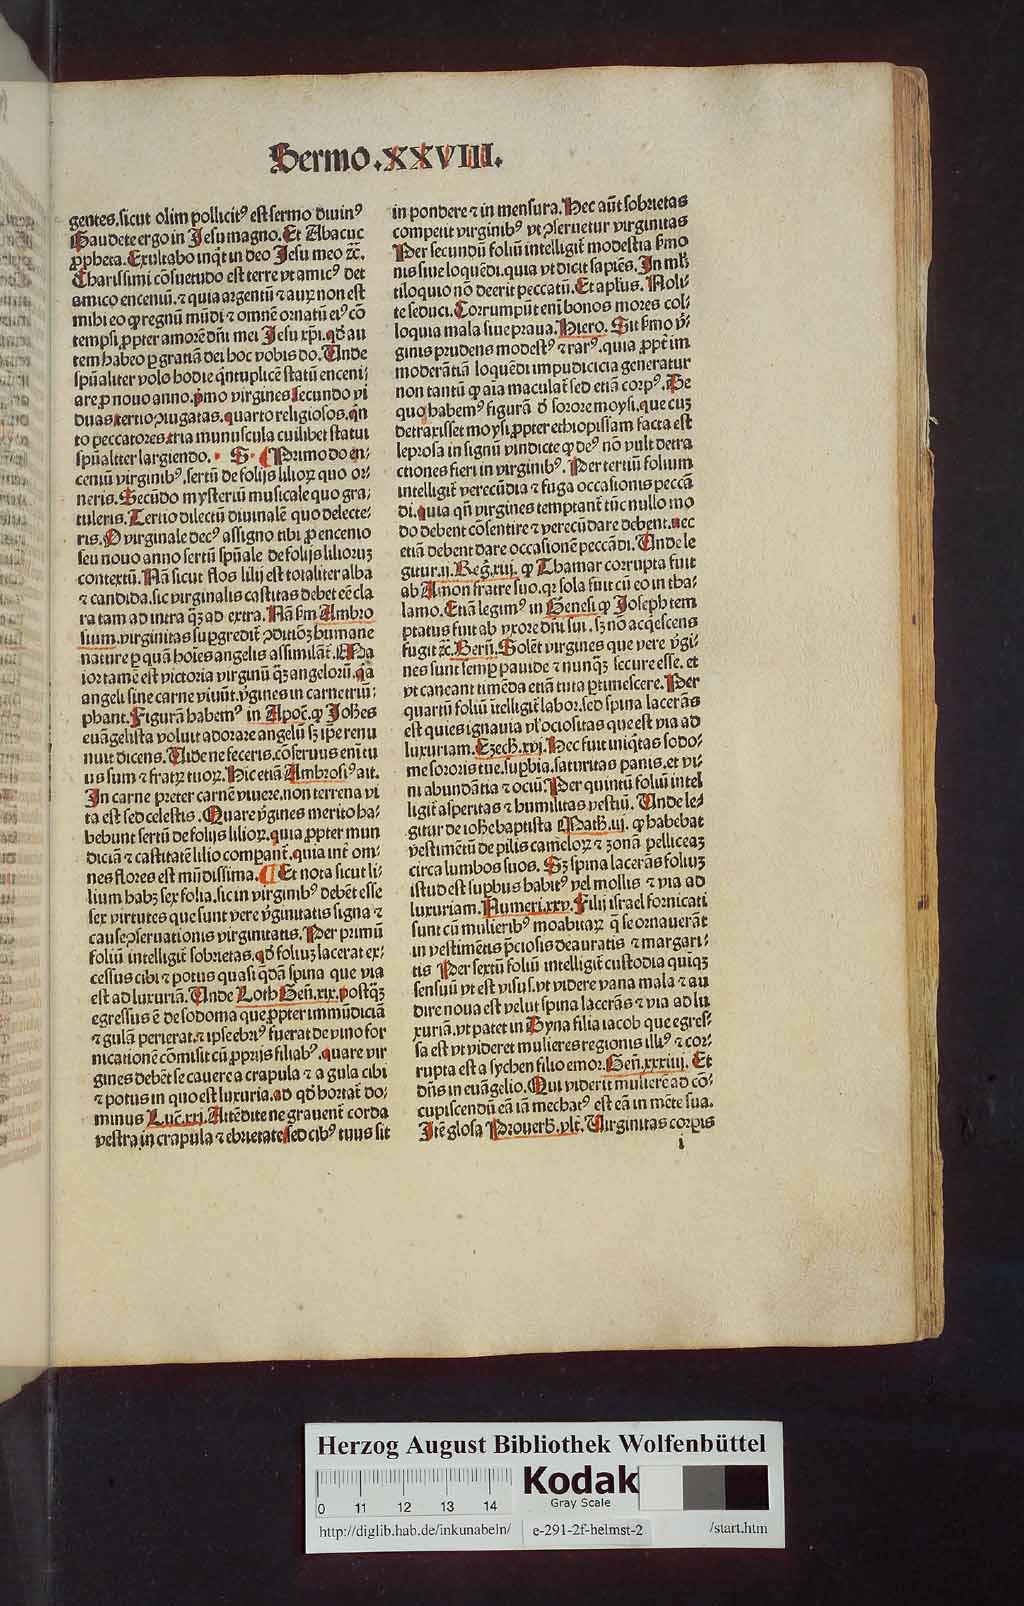 Sermo .XXVIII.
gentes. sicut olim pollicitꝰ est sermo diuinꝰ
Gaudete ergo in Jesu magno. Et Abacuc
ꝓpheta. Exultabo inq̇t in deo Jesu meo ⁊c̄.
Charissimi cōsuetudo est terre vt amicꝰ det
amico enceniū. ⁊ quia argentū ⁊ auꝝ non est
mihi eo ꝙ regnū mūdi ⁊ omnē ornatū eiꝰ cō
tempsi ꝓpter amorē dn̄i mei Jesu xp̄i. qd̄ au
tem habeo ꝑ gratiā dei hoc vobis do. Unde
spūaliter volo hodie q̇ntuplicē statū enceni/
are ꝓ nouo anno. p̄mo virgines secundo vi
duas. tertio ꝯiugatas. quarto religiosos. q̇n
to peccatores. tria munuscula cuilibet statui
spūaliter largiendo. S. ¶ Primo do en/
ceniū virginibꝰ. sertū de folijs lilioꝝ quo or/
neris. Secūdo mysteriū musicale quo gra/
tuleris. Tertio dilectū diuinalē quo delecte/
ris. O virginale decꝰ assigno tibi ꝓ encenio
seu nouo anno sertū spūale de folijs liliorū
contextū. Nā sicut flos lilij est totaliter alba
⁊ candida. sic virginalis castitas debet eē cla
ra tam ad intra q̄ꝫ ad extra. Nā fm Ambro
sium. virginitas suꝑgredit̄ ꝯditionē humane
nature ꝑ quā hoīes angelis assimilāt̄. Ma
ior tamē est victoria virginū q̄ꝫ angelorū. q̄a
angeli sine carne viuūt. v̄gines in carne triū/
phant. Figurā habemꝰ in Apoc̄. ꝙ Joh̄es
euāgelista voluit adorare angelū sꝫ ip̄e renu
nuit dicens. Uide ne feceris. cōseruus eni tu
us sum ⁊ fratꝝ tuoꝝ. Hic etiā Ambrosiꝰ ait.
In carne preter carnē viuere. non terrena vi
ta est sed celestis. Quare v̄gines merito ha/
bebunt sertū de folijs lilioꝝ. quia ꝓpter mun
diciā ⁊ castitatē lilio compant̄. quia int̄ om/
nes flores est mūdissima. ¶ Et nota sicut li/
lium habꝫ sex folia. sic in virginibꝰ debēt esse
sex virtutes que sunt vere v̄ginitatis signa ⁊
cause ꝯseruationis virginitatis. Per primū
foliū intelligit̄ sobrietas. qd̄ foliuꝫ lacerat ex/
cessus cibi ⁊ potus quasi q̄dā spina que via
est ad luxuriā. Unde Loth Geñ.xix. postq̄ꝫ
egressus ē de sodoma que ꝓpter immūdiciā
⁊ gulā perierat. ⁊ ipse ebriꝰ fuerat de vino for
nicationē cōmisit cū ꝓprijs filiabꝰ. quare vir
gines debēt se cauere a crapula ⁊ a gula cibi
⁊ potus in quo est luxuria. ad qd̄ hortat̄ do/
minus Luc̄.xxi. Attēdite ne grauent̄ corda
vestra in crapula ⁊ ebrietate sed cibꝰ tuus sit
in pondere ⁊ in mensura. Hec aūt sobrietas
competit virginibꝰ vt ꝯseruetur virginitas
Per secundū foliū intelligit̄ modestia s̄mo
nis siue loquēdi. quia vt dicit sapiēs. In ml̄
tiloquio nō deerit peccatū. Et aplus. Noli/
te seduci. Corrumpūt eni bonos mores col/
loquia mala siue praua. Hiero. Sit s̄mo v̄/
ginis prudens modestꝰ ⁊ rarꝰ. quia ꝓpt̄ im
moderātiā loquēdi impudicicia generatur
non tantū ꝙ aīa maculat̄ sed etiā corpꝰ. De
quo habemꝰ figurā d̄ sorore moysi. que cuꝫ
detraxisset moysi ꝓpter ethiopissam facta est
leprosa in signū vindicte ꝙ deꝰ nō vult detra
ctiones fieri in virginibꝰ. Per tertiū folium
intelligit̄ verecūdia ⁊ fuga occasionis pecca
di. quia qn̄ virgines temptant̄ tūc nullo mo
do debent cōsentire ⁊ verecūdare debent. nec
etiā debent dare occasionē peccādi. Unde le
gitur.ij. Reg̃.xiij. ꝙ Thamar corrupta fuit
ab Amon fratre suo. qꝛ sola fuit cū eo in tha/
lamo. Etiā legimꝰ in Genesi ꝙ Joseph tem
ptatus fuit ab vxore dn̄i sui. sꝫ nō acq̇escens
fugit ⁊c̄. Berñ. Solēt virgines que vere v̄gi/
nes sunt semꝑ pauide ⁊ nunq̄ꝫ secure esse. et
vt caueant timēda etiā tuta ꝑtimescere. Per
quartū foliū itelligit̄ labor. sed spina lacerās
est quies ignauia vl̓ ociositas que est via ad
luxuriam. Ezech̄.xvj. Hec fuit iniq̇tas sodo/
me sororis tue. suꝑbia. saturitas panis. et vi/
ni abundātia ⁊ ociū. Per quintū foliū intel
ligit̄ asperitas ⁊ humilitas vestiū. Unde le/
gitur de ioh̄e baptista Math̄.iij. ꝙ habebat
vestimētū de pilis cameloꝝ ⁊ zonā pelliceaꝫ
circa lumbos suos. Sꝫ spina lacerās foliuꝫ
istud est suꝑbus habitꝰ vel mollis ⁊ via ad
luxuriam. Numeri.xxv. Filij israel fornicati
sunt cū mulieribꝰ moabitaꝝ q̄ se ornauerāt
in vestimētis p̄ciosis deauratis ⁊ margari/
tis Per sextū foliū intelligit̄ custodia quiqꝫ
sensuū vt est visus. vt videre vana mala ⁊ au
dire noua est velut spina lacerās ⁊ via ad lu
xuriā. vt patet in Dyna filia iacob que egres/
sa est vt videret mulieres regionis illiꝰ ⁊ cor/
rupta est a sychen filio emor. Geñ.xxxiiij. Et
dn̄s in euāgelio. Qui viderit muliere ad cō/
cupiscendū eā iā mechatꝰ est eā in mēte sua.
Itē glosa Prouerb̄.vlt̄. Uirginitas corꝑis
i
Herzog August Bibliothek Wolfenbüttel
0 11 12 13 14
Kodak
Gray Scale
http://diglib.hab.de/inkunabeln/ e-291-2f-helmst-2 /start.htm